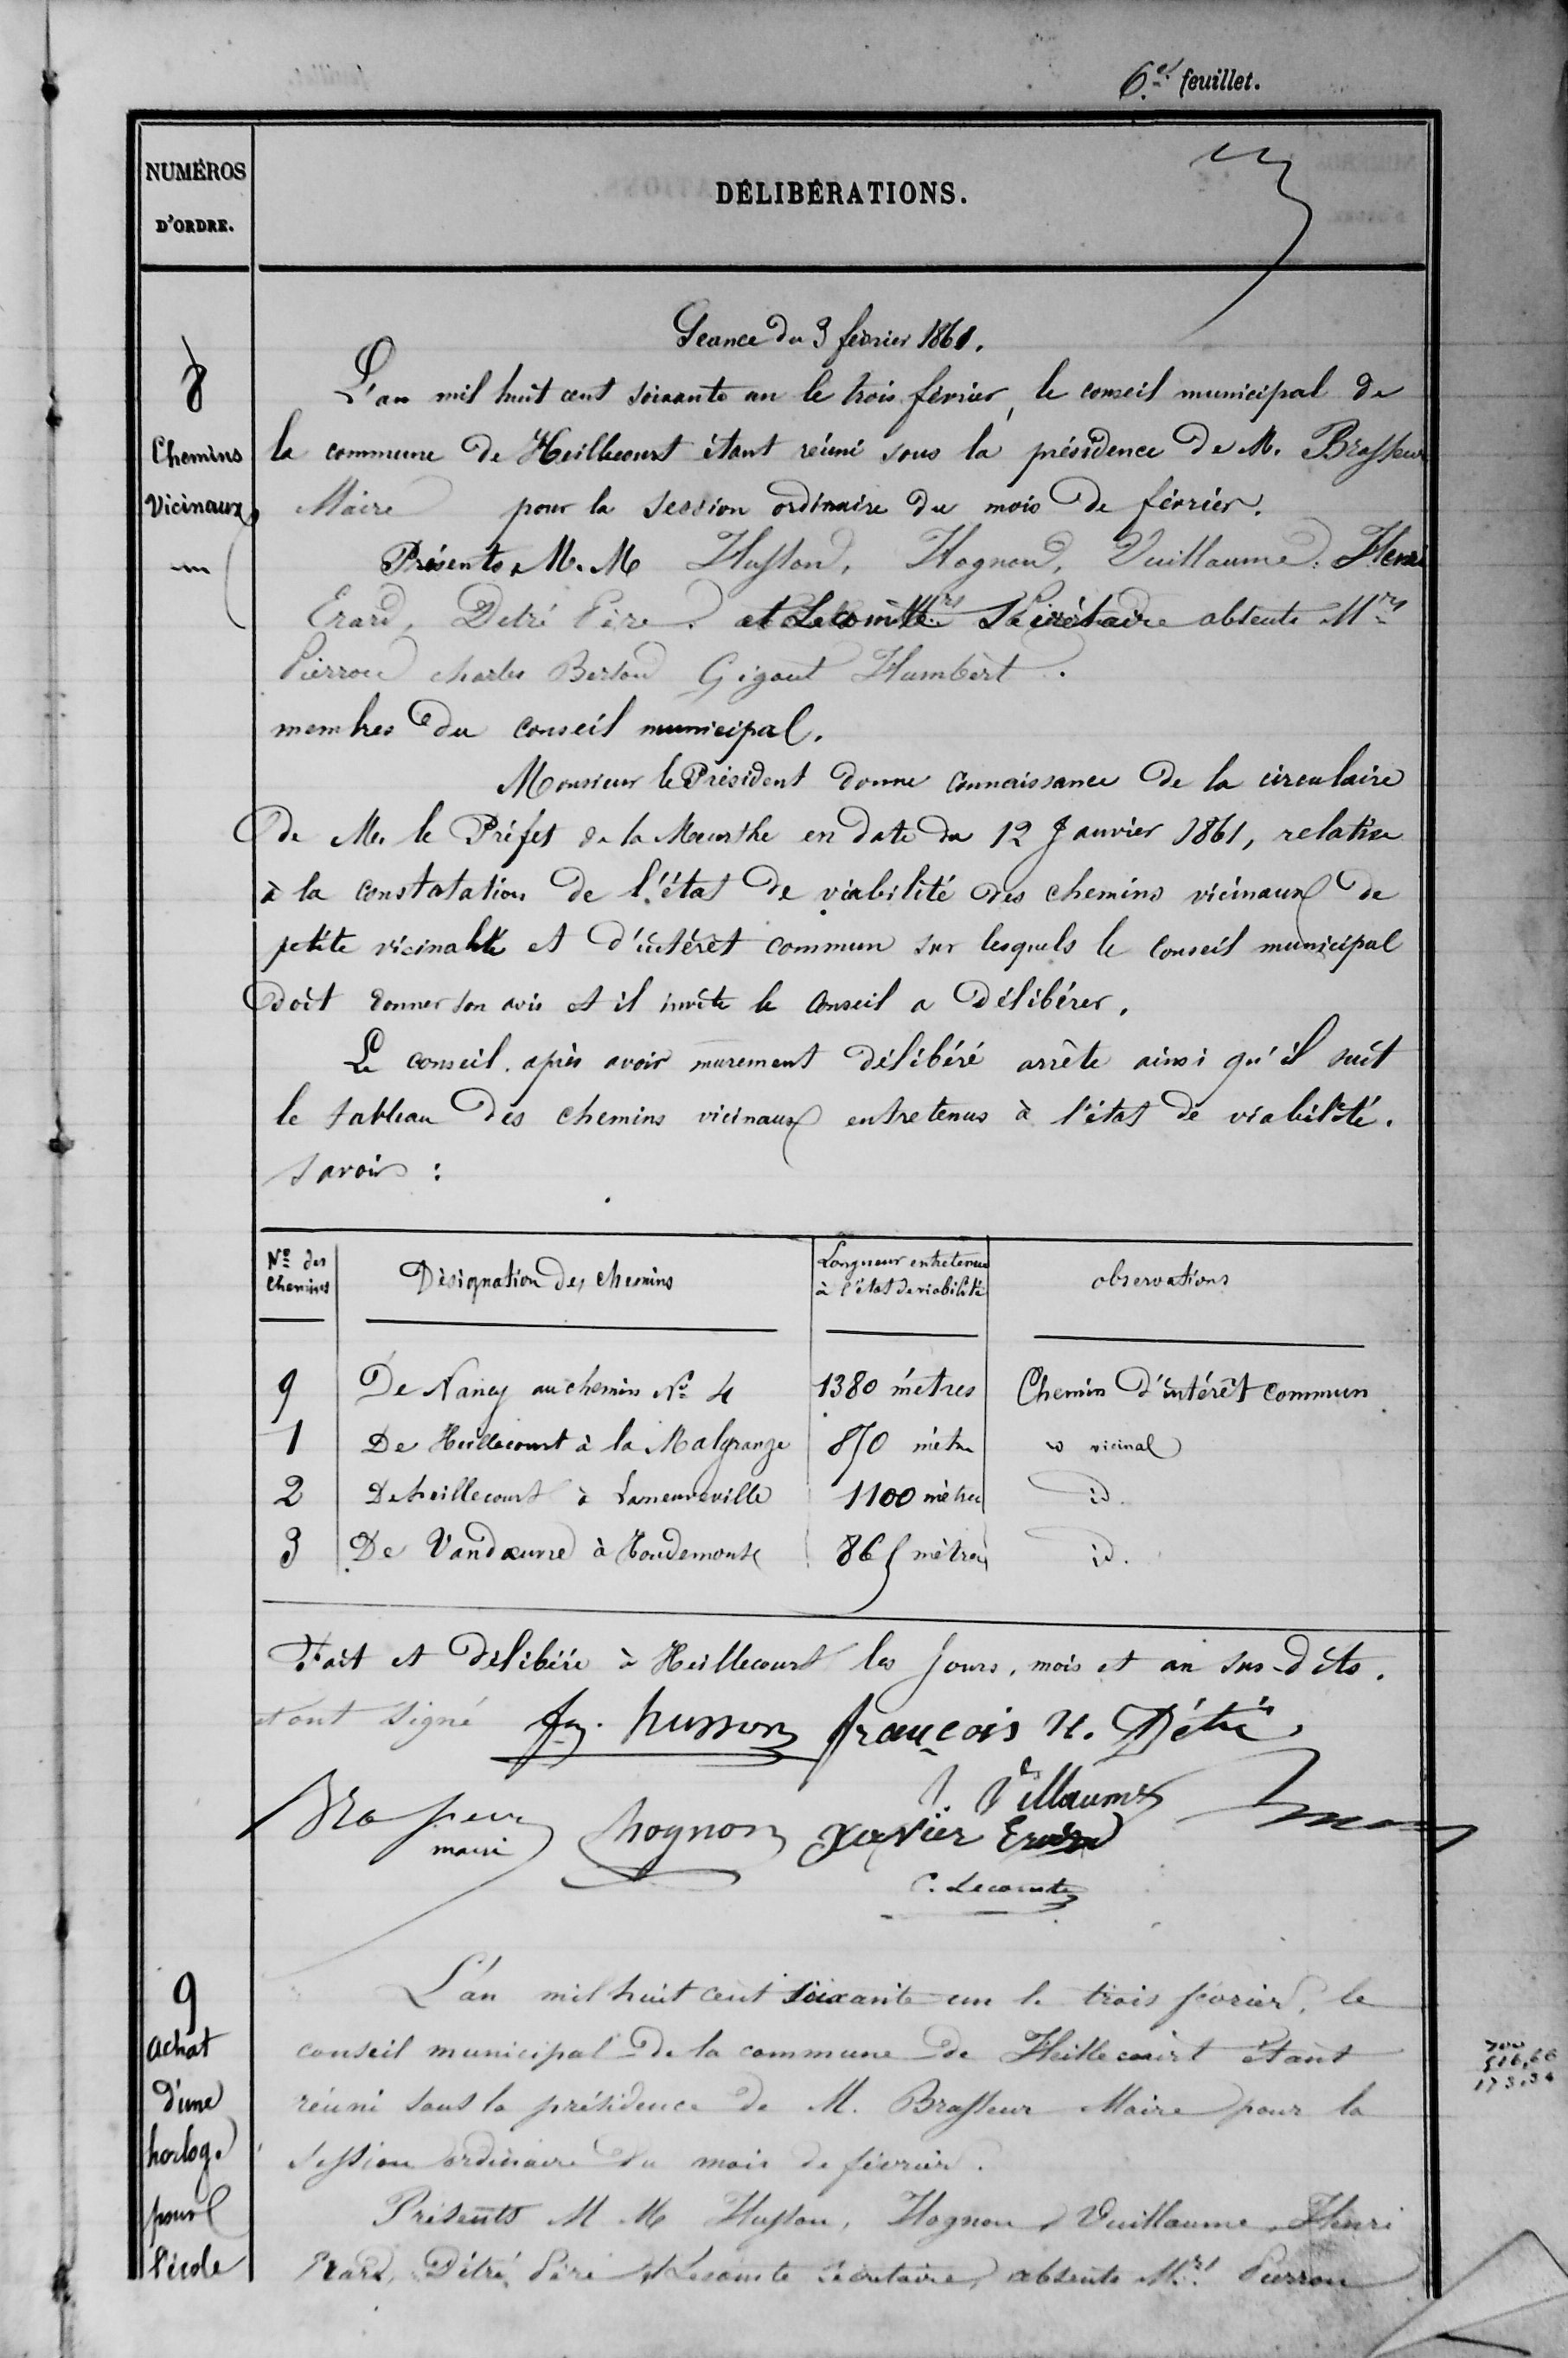 6.e feuillet.
NUMÉROS
D'ORDRE.
DÉLIBÉRATIONS.
Séance du 3 février 1861.
8
Chemins
Vicinaux
L'an mil huit cent soixante un le trois février, le conseil municipal de
la commune de Heillecourt étant réuni sous la présidence de M. Brasseur
Maire pour la session ordinaire du mois de février.
Présents M.M Husson, Hognon, Vuillaume, Henri
Erard, Detré Père. et Lecomte Secrétaire absents Mrs
Pierron charles Berton Gigout Humbert.
membres du conseil municipal.
Monsieur le Président donne connaissance de la circulaire
de M. le Préfet de la Meurthe en date du 12 Janvier 1861, relative
à la constatation de l'état de viabilité des chemins vicinaux de
petite vicinalité et d'intérêt commun sur lesquels le conseil municipal
doit donner son avis et il invite le conseil a délibérer.
Le conseil. après avoir murement délibéré arrête ainsi qu'il suit
le tableau des chemins vicinaux entretenus à l'état de viabilité.
savoir :
Nos des
Chemins
Désignation des chemins
Longueur entretenue
à l'état de viabilité
observations
9 De Nancy au chemin No 4 1380 mètres Chemin d'intérêt commun
1 De Heillecourt à la Malgrange 850 mètres vicinal
2 De heillecourt à Laneuveville 1100 mètres id.
3 De Vandœuvre à Houdemont 865 mètres id.
Fait et délibéré à Heillecourt les Jours, mois et an sus-dits.
et ont signé
husson françois N. Détré
Brasseur
maire
hognon
Villaume
xavier Erard
C. Lecomte
9
achat
d'une
horloge
pour
l'école
L'an mil huit cent soixante un le trois février, le
conseil municipal de la commune de Heillecourt étant
réuni sous la présidence de M. Brasseur Maire pour la
session ordinaire du mois de février.
Présents M M Husson, Hognon, Vuillaume, Henri
Erard, Détré Père et Lecomte secrétaire, absents Mrs Pierron
700
516,66
173.34